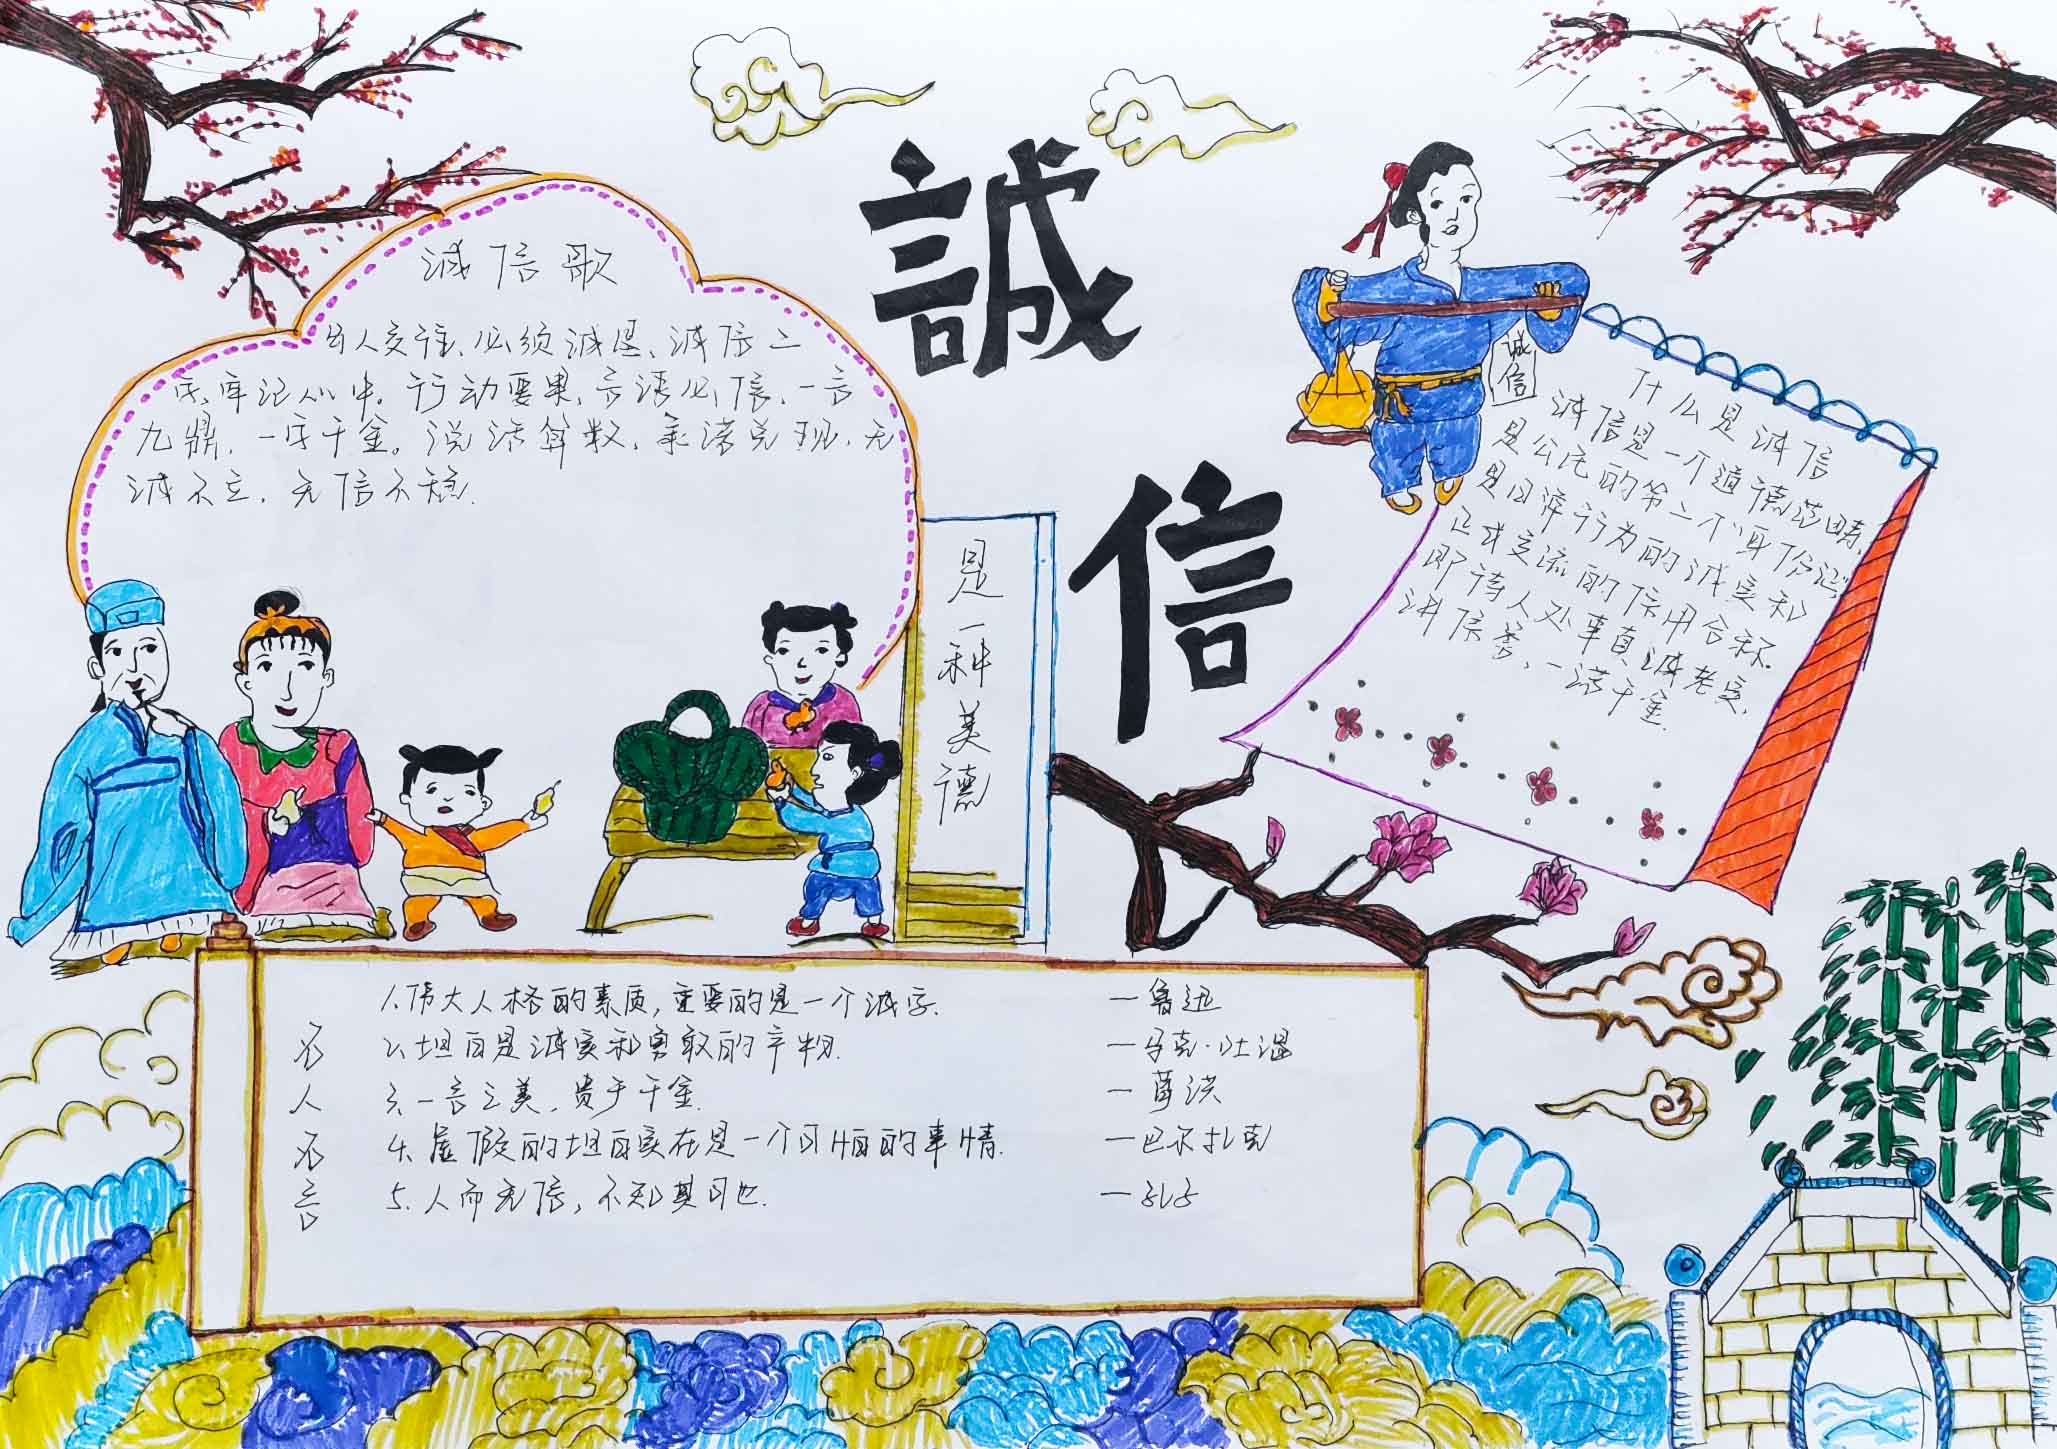 誠信
诚信歌
与人交往、必须诚恳、诚信二
字、牢记心中。行动要果、言语必信、一言
九鼎、一字千金。说话算数、承诺兑现、无
诚不立、无信不稳.
是一种美德
诚信
什么是诚信
诚信是一个道德范畴、
是公民的第二个"身份证"
是日常行为的诚实和
正式交流的信用合称.
即待人处事真诚老实、
讲信誉、一诺千金.
名人名言
1.伟大人格的素质，重要的是一个诚字. —鲁迅
2.坦白是诚实和勇敢的产物. —马克·吐温
3.一言之美，贵于千金. —葛洪
4.虚假的坦白实在是一个可怕的事情. —巴尔扎克
5.人而无信，不知其可也. —孔子